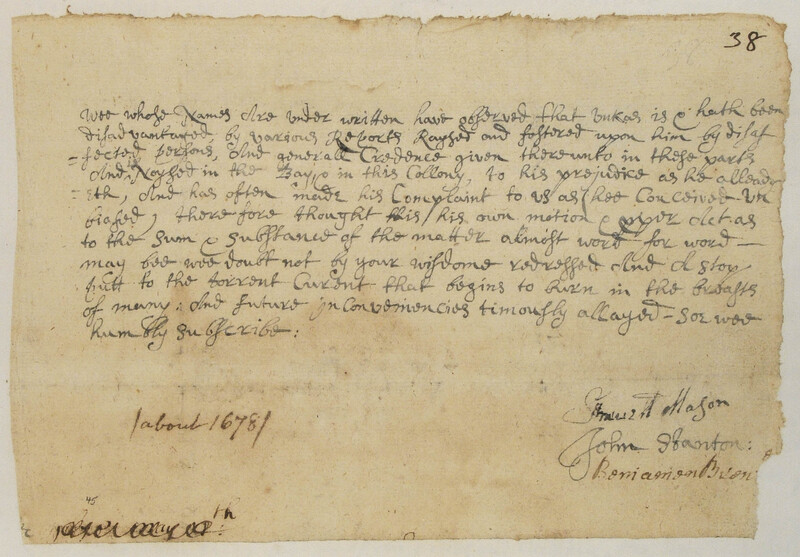 38
wee whose Names Are under written have observed that Unkas is & hath been
disadvantaged, by various Reports Raysed and fostered upon him by disaf
- fected persons, And generall Credence given thereunto in these parts
And Noysed in the Bay, & in this Collony, to his prejudice as he alleadg
- eth, And has often made his Complaint to us as hee Conceived un
biased, therefore thought this his own motion & proper Act as
to the Sum & Substance of the matter almost word for word —
may bee wee doubt not by your wisdome redressed And A stop
putt to the torrent Current that begins to burn in the breasts
of many: And future inconveniencies timously allayed – Soe wee
humbly Subscribe:
Mason
/about 1678/
John Stanton:
Beniamen
45
th